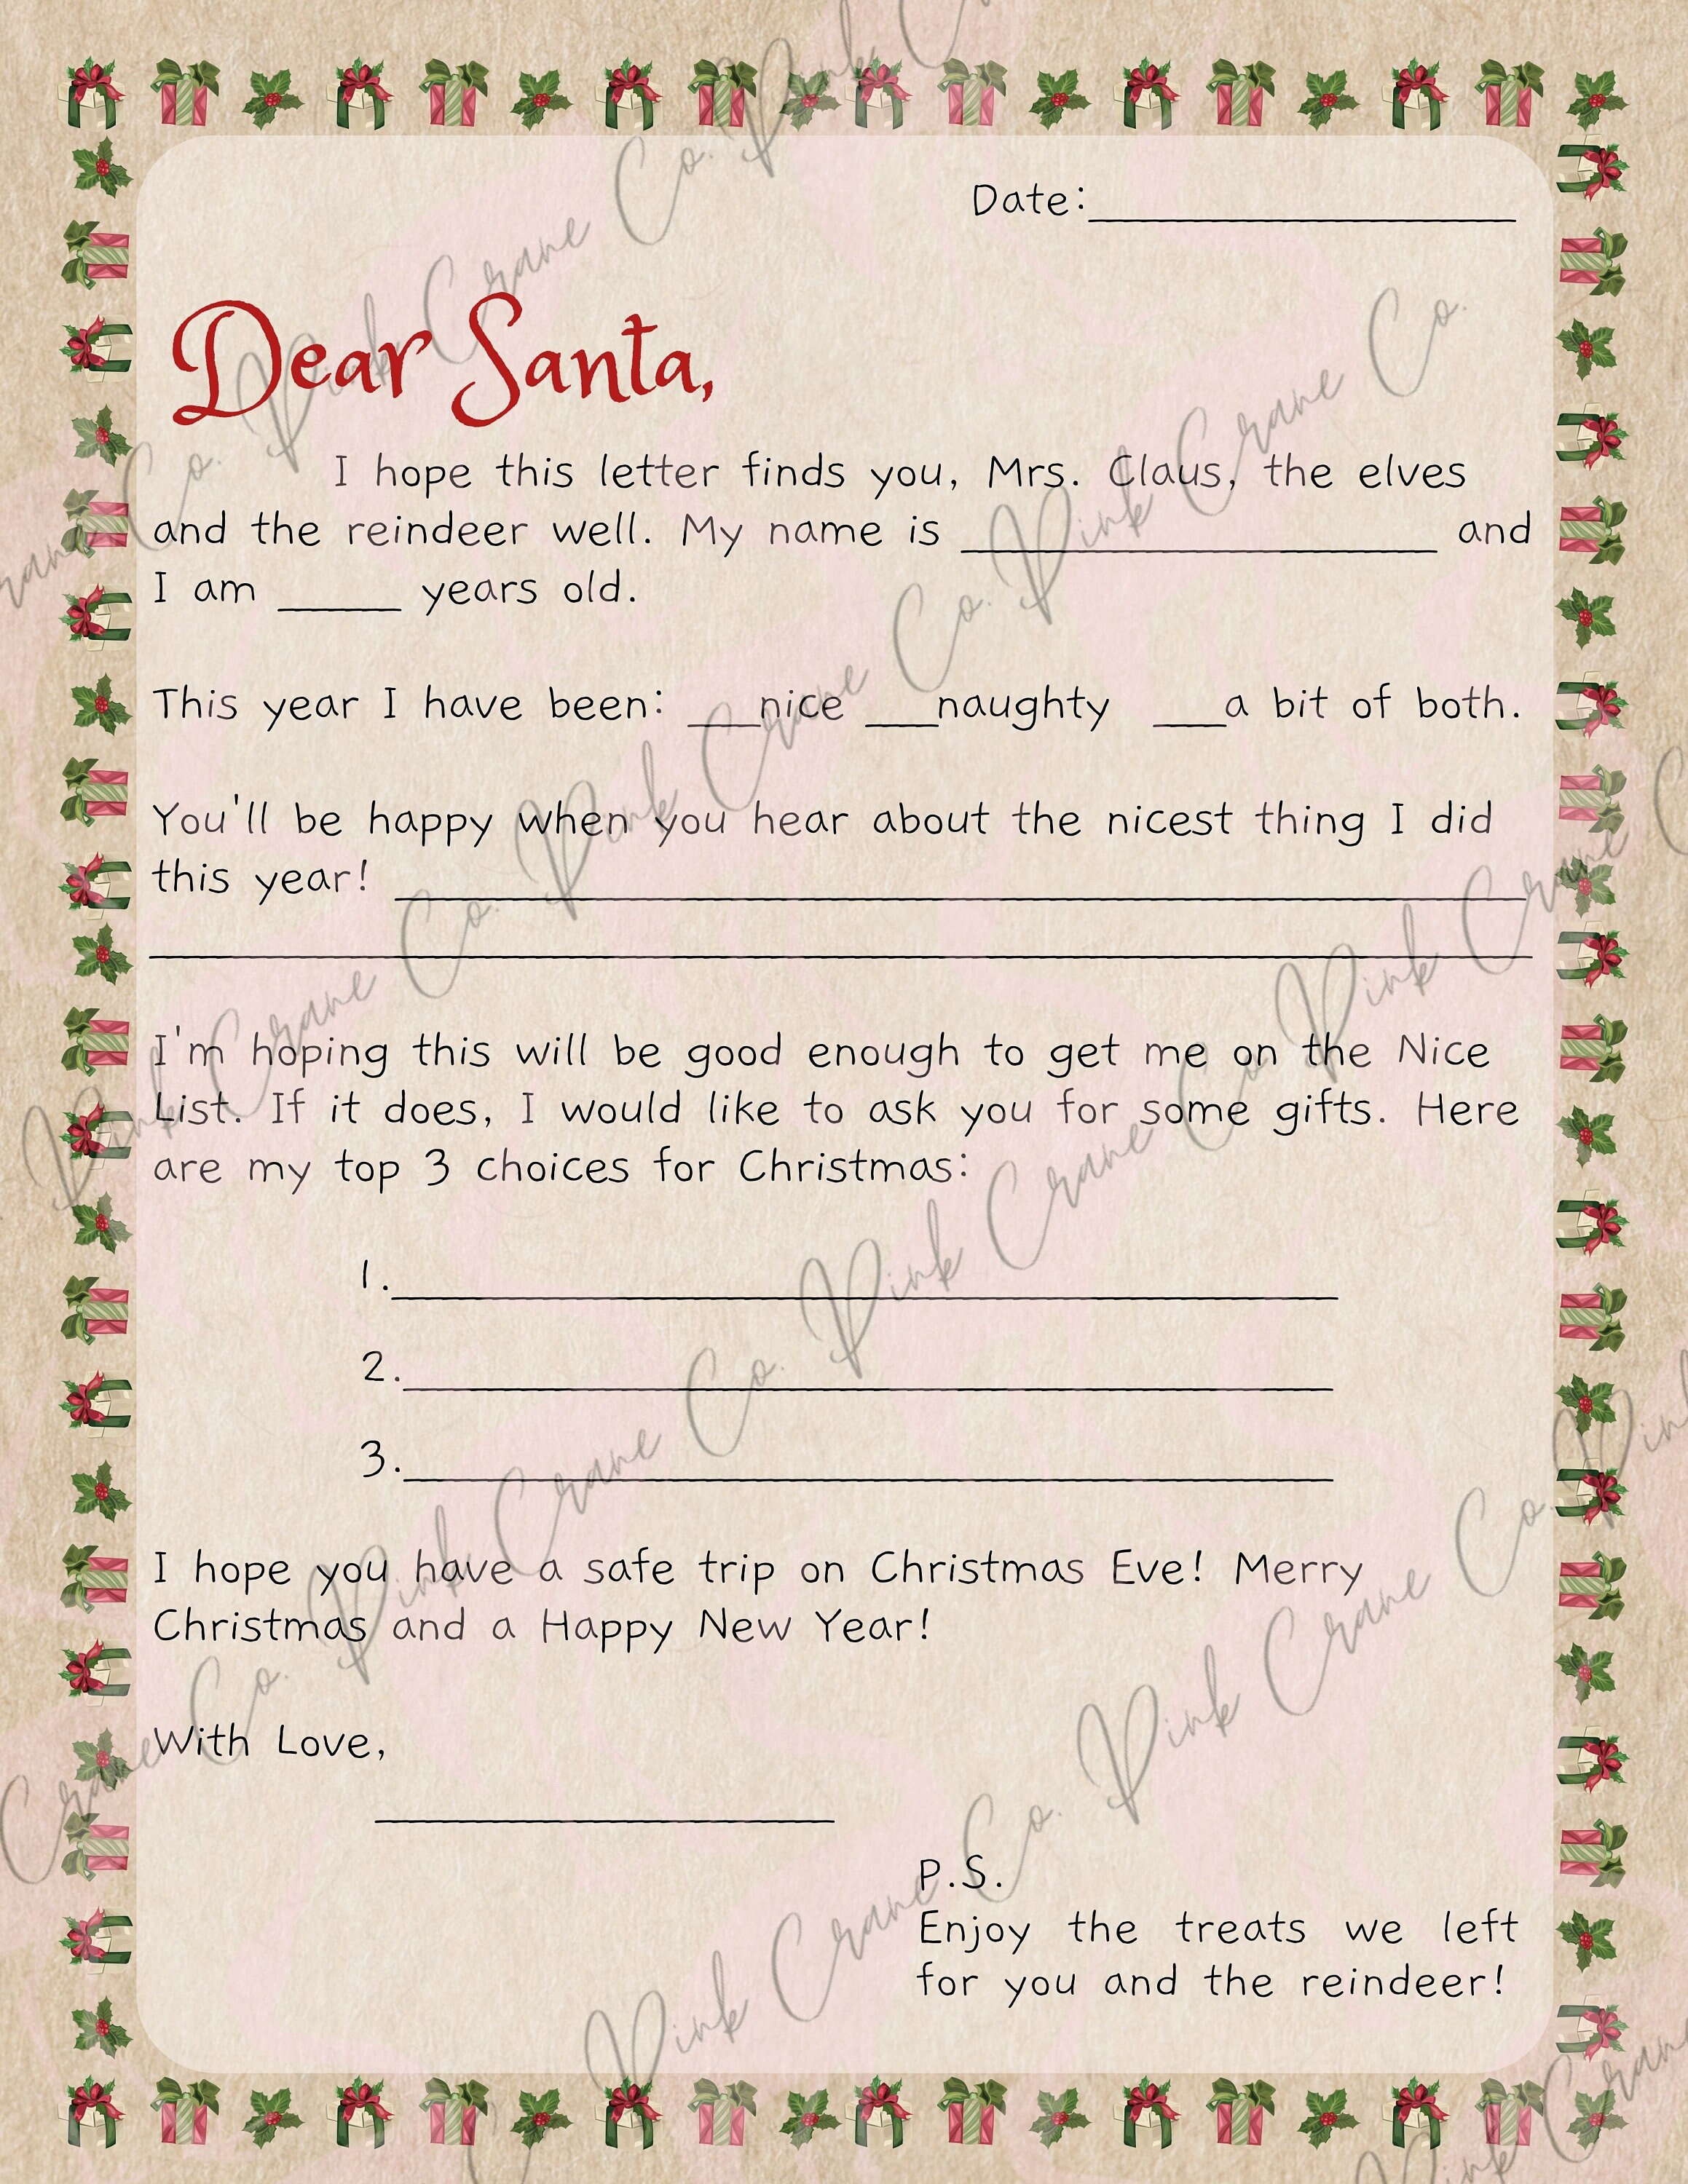 Date:____________________
Dear Santa,
I hope this letter finds you, Mrs. Claus, the elves
and the reindeer well. My name is ____________________ and
I am _____ years old.
This year I have been: ___nice ___naughty ___a bit of both.
You'll be happy when you hear about the nicest thing I did
this year! ________________________________________
__________________________________________________
I'm hoping this will be good enough to get me on the Nice
List. If it does, I would like to ask you for some gifts. Here
are my top 3 choices for Christmas:
1.________________________________________
2.________________________________________
3.________________________________________
I hope you have a safe trip on Christmas Eve! Merry
Christmas and a Happy New Year!
With Love,
____________________
P.S.
Enjoy the treats we left
for you and the reindeer!
Pink Crane Co. Pink Crane Co. Pink Crane Co.